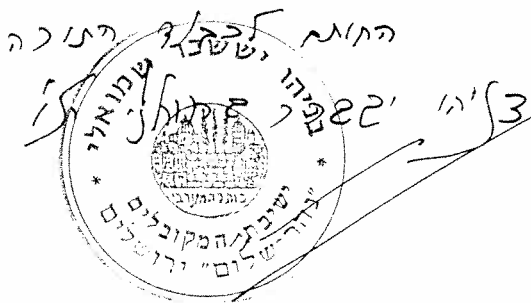 החותם לכבוד התורה
בניהו יששכר שמואלי
בניהו יששכר שמואלי
כותל המערבי
ישיבת המקובלים
"נהר-שלום" ירושלים